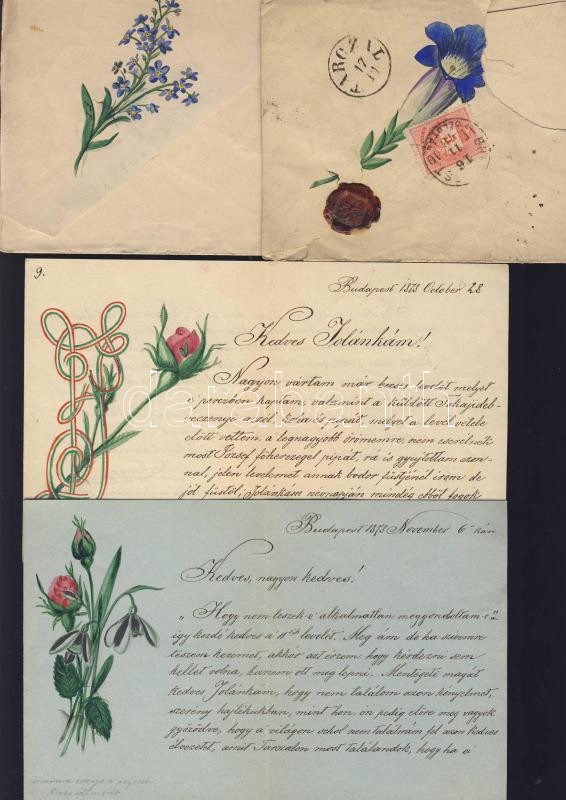 TARCZAL
17
11
BUDAPEST
16
11
9.
Budapest 1873 October 28
Kedves Jolánkám!
Nagyon vártam már becses levelét melyet
e perczben kaptam, valamint a küldött
és pipát, melyet a levél vétele
előtt vettem a legnagyobb örömemre, nem cserélnék
most József főherczeggel pipát, rá is gyujtottam azon-
nal, jelen levelemet annak bodor füstjénél irom de
jól füstöl, Jolánkám mindég ebből fogok
darabanth
Budapest 1873 November 6-kán
Kedves, nagyon kedves!
„Hogy nem leszek-e alkalmatlan meggondoltam-e"
igy kezdé kedves a levelét. Még ám de ha szivemre
teszem kezemet, akkor azt érzem, hogy kérdezni sem
kellett volna, hanem ott meglepni. Mentegeti magát
kedves Jolánkám, hogy nem találom azon kényelmet,
szerény hajlékukban, mint hon, ön pedig előre meg vagyok
győződve, hogy a világon sehol nem találnám fel azon kedves
élvezetet, amit Tarczalon most találandok, hogy ha a